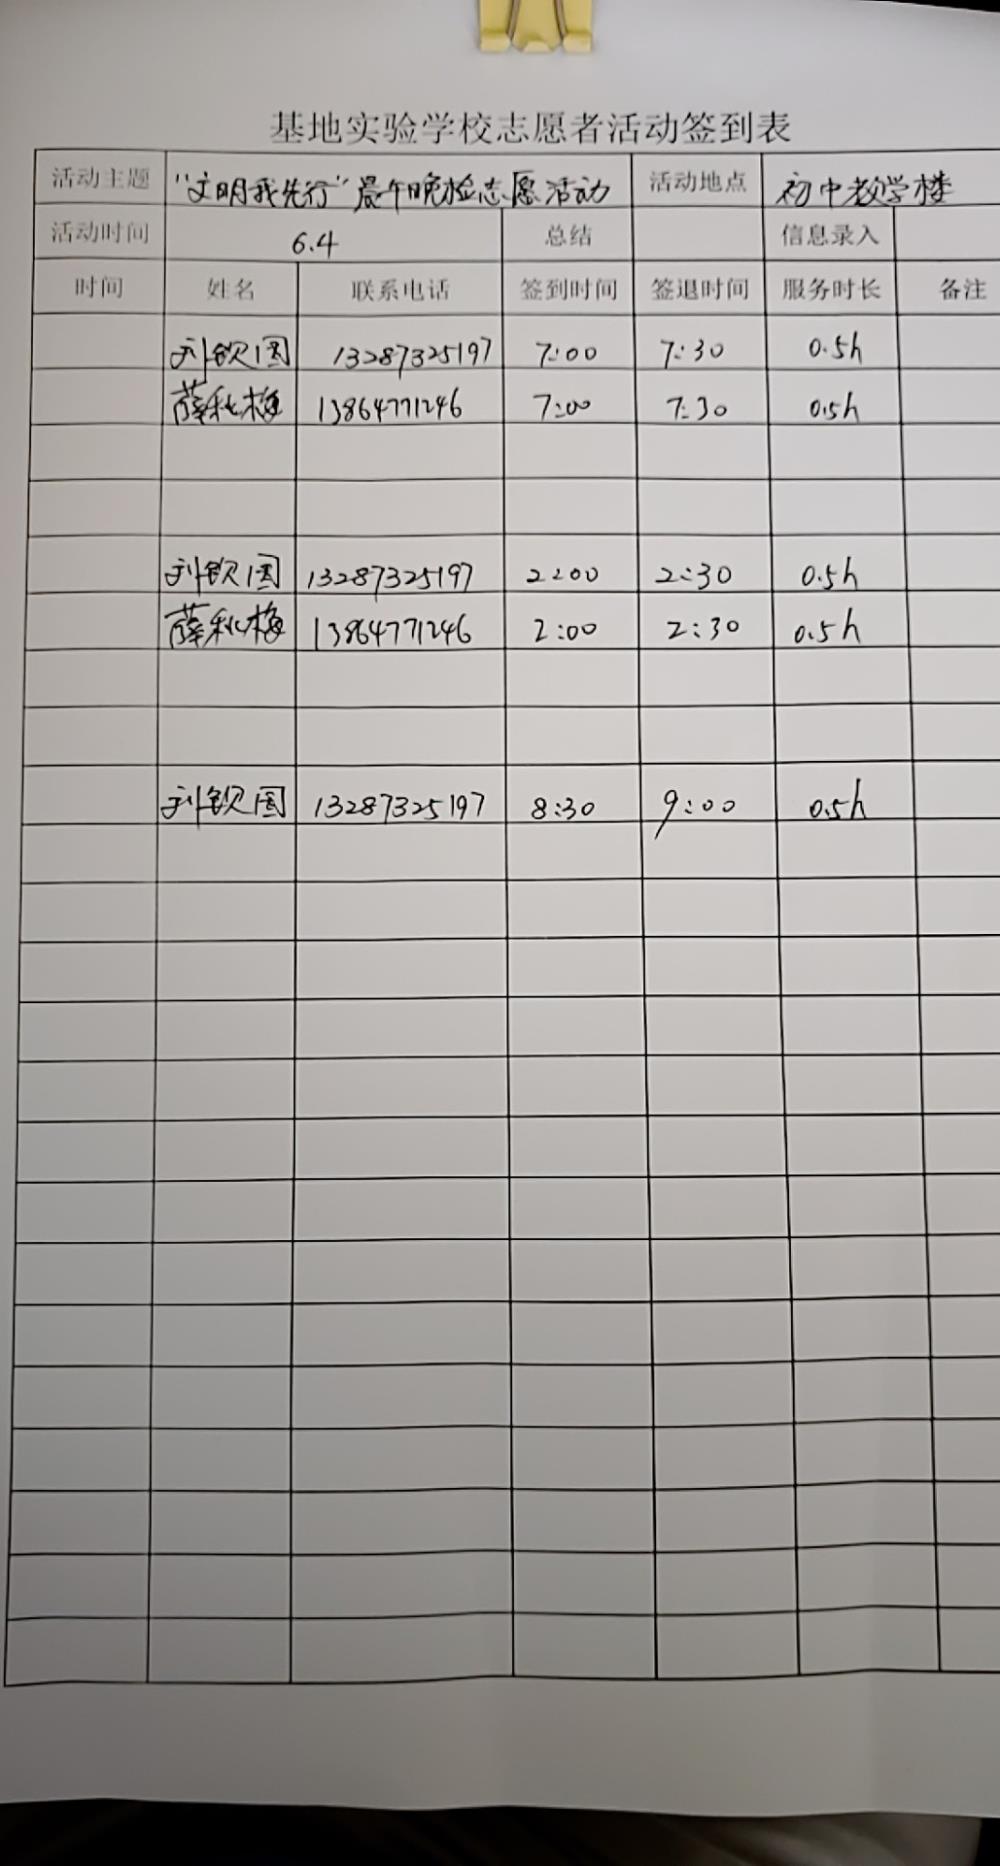 基地实验学校志愿者活动签到表
活动主题 "文明我先行"晨午晚检志愿活动 活动地点 初中教学楼
活动时间 6.4 总结 信息录入
时间 姓名 联系电话 签到时间 签退时间 服务时长 备注
刘钦国 13287325197 7:00 7:30 0.5h
薛秋梅 13864771246 7:00 7:30 0.5h
刘钦国 13287325197 2:00 2:30 0.5h
薛秋梅 13864771246 2:00 2:30 0.5h
刘钦国 13287325197 8:30 9:00 0.5h